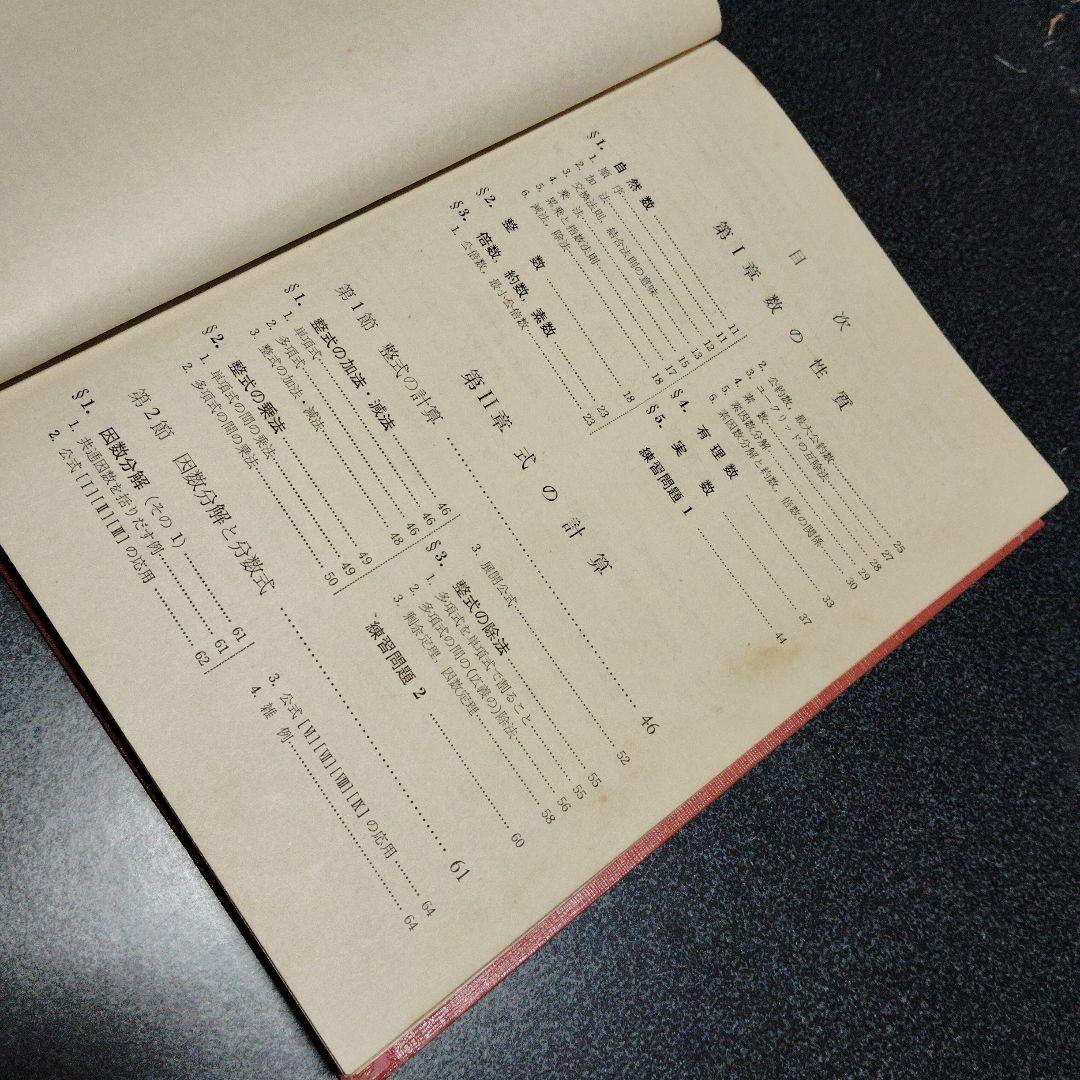 目次
第I章 数の性質
§1. 自然数……11
1. 順序……11
2. 加法……12
3. 交換法則，結合法則の意味……13
4. 乗法……15
5. 累乗と指数法則……17
6. 減法，除法……18
§2. 整数……18
§3. 倍数，約数，素数……23
1. 公倍数，最小公倍数……23
2. 公約数，最大公約数……25
3. ユークリッドの互除法……27
4. 素数……28
5. 素因数分解……29
6. 素因数分解と約数，倍数の関係……30
§4. 有理数……33
§5. 実数……37
練習問題 1……44
第II章 式の計算
第1節 整式の計算……46
§1. 整式の加法・減法……46
1. 単項式……46
2. 多項式……48
3. 整式の加法・減法……49
§2. 整式の乗法……49
1. 単項式の間の乗法……49
2. 多項式の間の乗法……50
3. 展開公式……52
§3. 整式の除法……55
1. 多項式を単項式で割ること……55
2. 多項式の間の(広義の)除法……56
3. 剰余定理，因数定理……58
練習問題 2……60
第2節 因数分解と分数式……61
§1. 因数分解（その1）……61
1. 共通因数を括りだす例……61
2. 公式[I][II][III]の応用……62
3. 公式[VI][VII][VIII][IX]の応用……64
4. 雑例……64